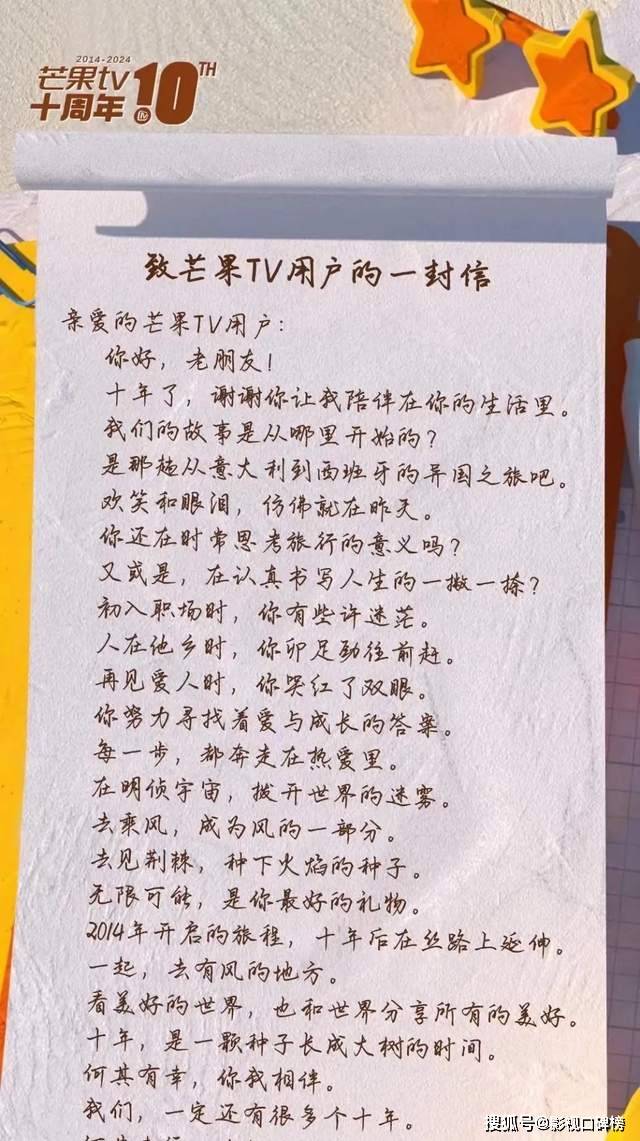 2014-2024
芒果tv
十周年
10TH
致芒果TV用户的一封信
亲爱的芒果TV用户：
你好，老朋友！
十年了，谢谢你让我陪伴在你的生活里。
我们的故事是从哪里开始的？
是那趟从意大利到西班牙的异国之旅吧。
欢笑和眼泪，仿佛就在昨天。
你还在时常思考旅行的意义吗？
又或是，在认真书写人生的一撇一捺？
初入职场时，你有些许迷茫。
人在他乡时，你卯足劲往前赶。
再见爱人时，你哭红了双眼。
你努力寻找着爱与成长的答案。
每一步，都奔走在热爱里。
在明侦宇宙，拨开世界的迷雾。
去乘风，成为风的一部分。
去见荆棘，种下火焰的种子。
无限可能，是你最好的礼物。
2014年开启的旅程，十年后在丝路上延伸。
一起，去有风的地方。
看美好的世界，也和世界分享所有的美好。
十年，是一颗种子长成大树的时间。
何其有幸，你我相伴。
我们，一定还有很多个十年。
搜狐号@影视口碑榜